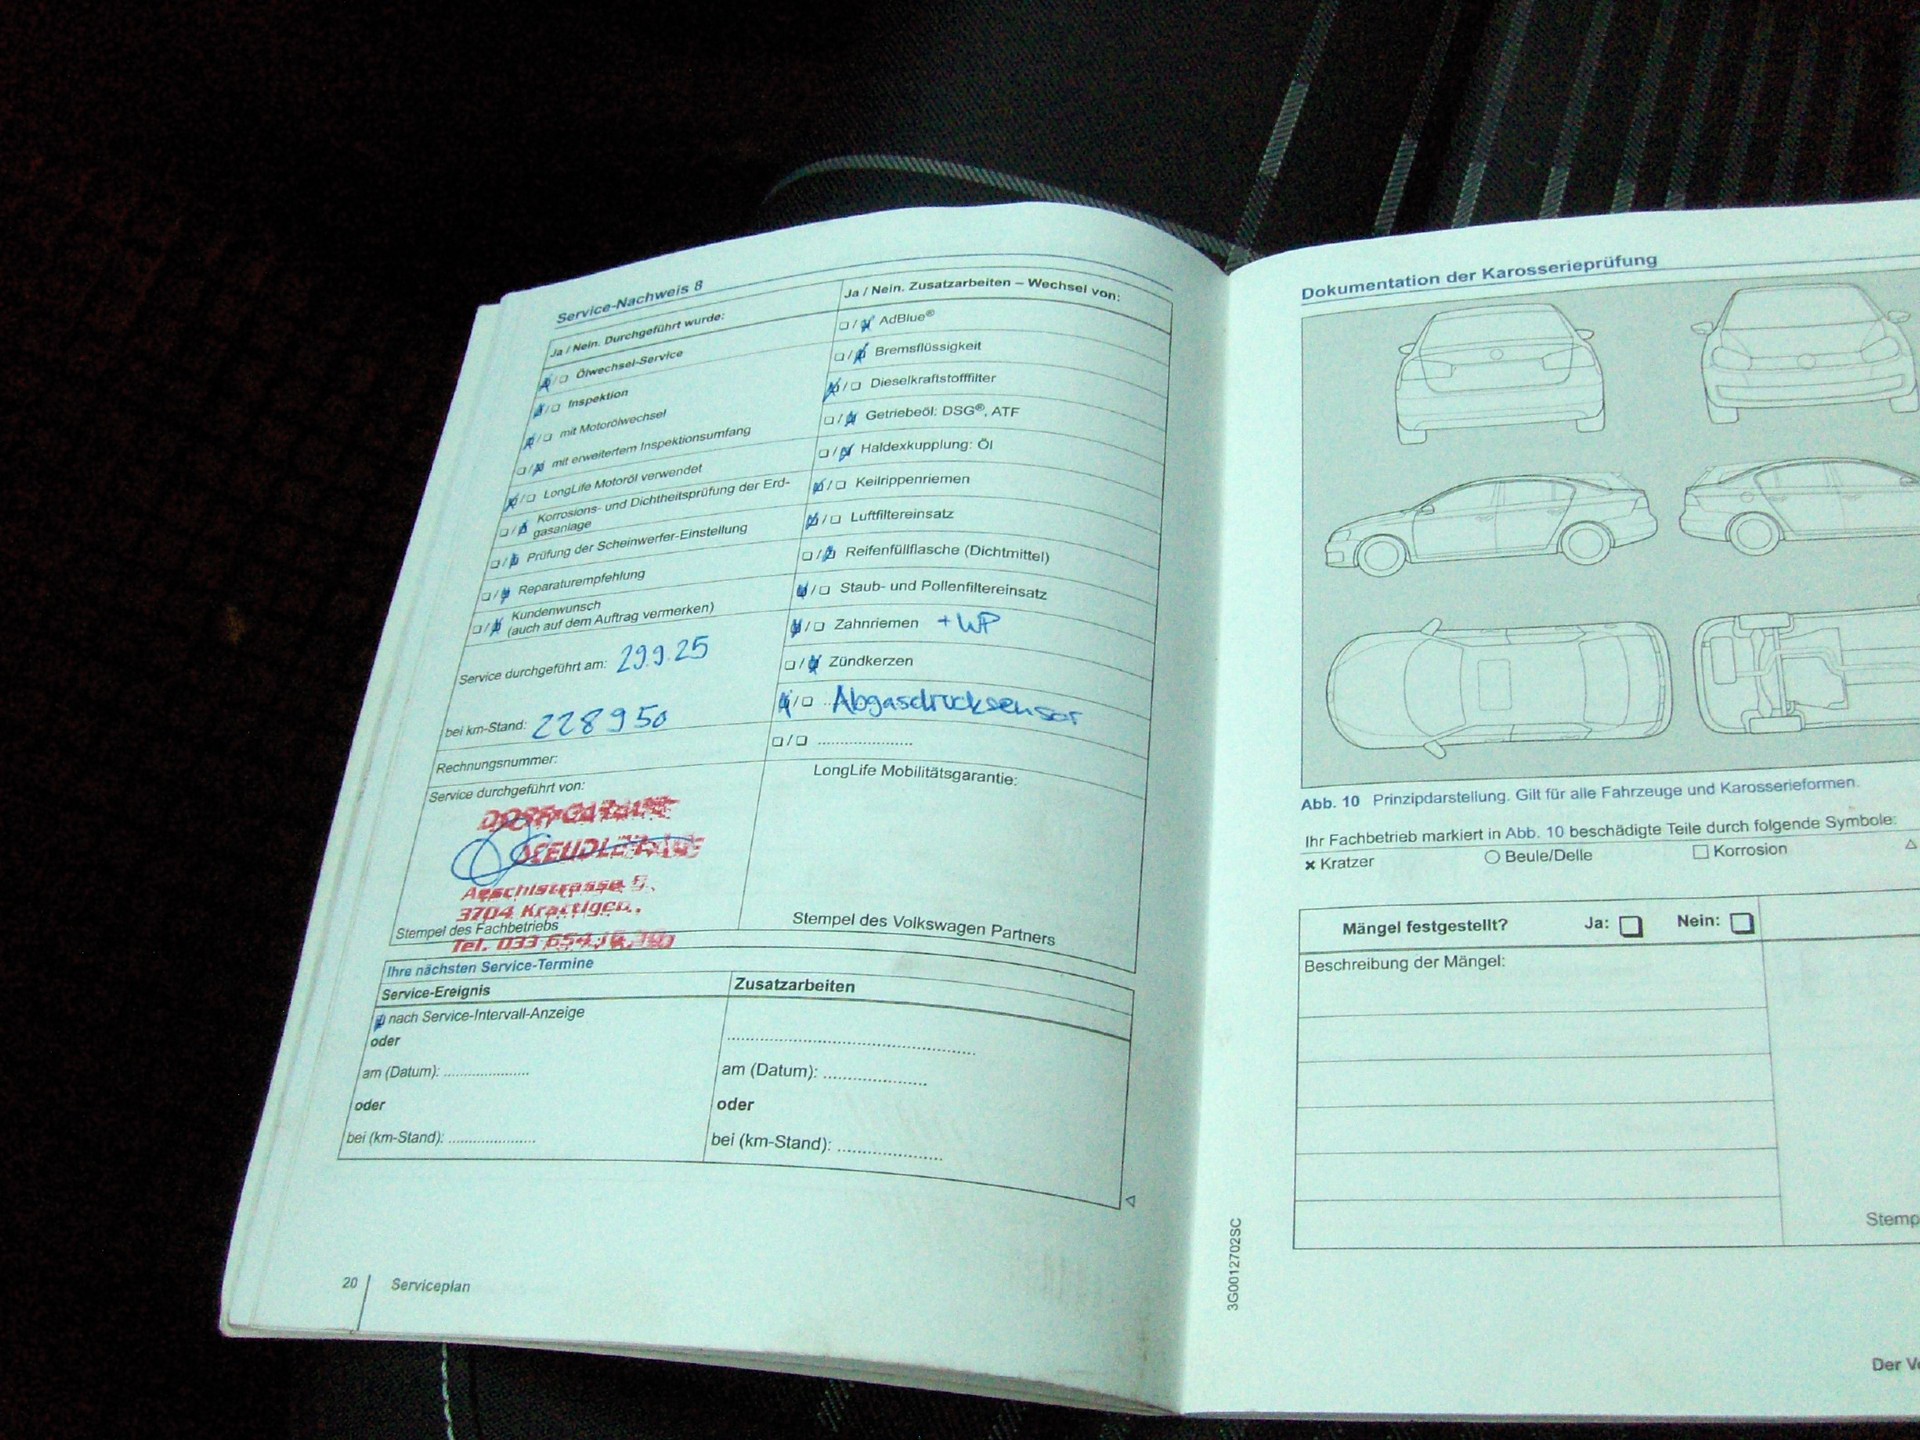 Service-Nachweis 8
Ja / Nein. Durchgeführt wurde:
Ölwechsel-Service
Inspektion
mit Motorölwechsel
mit erweitertem Inspektionsumfang
LongLife Motoröl verwendet
Korrosions- und Dichtheitsprüfung der Erd-
gasanlage
Prüfung der Scheinwerfer-Einstellung
Reparaturempfehlung
Kundenwunsch
(auch auf dem Auftrag vermerken)
Service durchgeführt am: 29.9.25
bei km-Stand: 228950
Rechnungsnummer:
Service durchgeführt von:
DORF-GARAGE
Aeschistrasse
3704 Krattigen
Stempel des Fachbetriebs
Tel. 033 654
Ja / Nein. Zusatzarbeiten – Wechsel von:
AdBlue®
Bremsflüssigkeit
Dieselkraftstofffilter
Getriebeöl: DSG®, ATF
Haldexkupplung: Öl
Keilrippenriemen
Luftfiltereinsatz
Reifenfüllflasche (Dichtmittel)
Staub- und Pollenfiltereinsatz
Zahnriemen + WP
Zündkerzen
Abgasdrucksensor
LongLife Mobilitätsgarantie:
Stempel des Volkswagen Partners
Ihre nächsten Service-Termine
Service-Ereignis
nach Service-Intervall-Anzeige
oder
am (Datum): ....................
oder
bei (km-Stand): ....................
Zusatzarbeiten
am (Datum): ....................
oder
bei (km-Stand): ....................
20 Serviceplan
Dokumentation der Karosserieprüfung
Abb. 10 Prinzipdarstellung. Gilt für alle Fahrzeuge und Karosserieformen.
Ihr Fachbetrieb markiert in Abb. 10 beschädigte Teile durch folgende Symbole:
Kratzer
Beule/Delle
Korrosion
Mängel festgestellt? Ja: Nein:
Beschreibung der Mängel:
Stemp
3G0012702SC
Der V